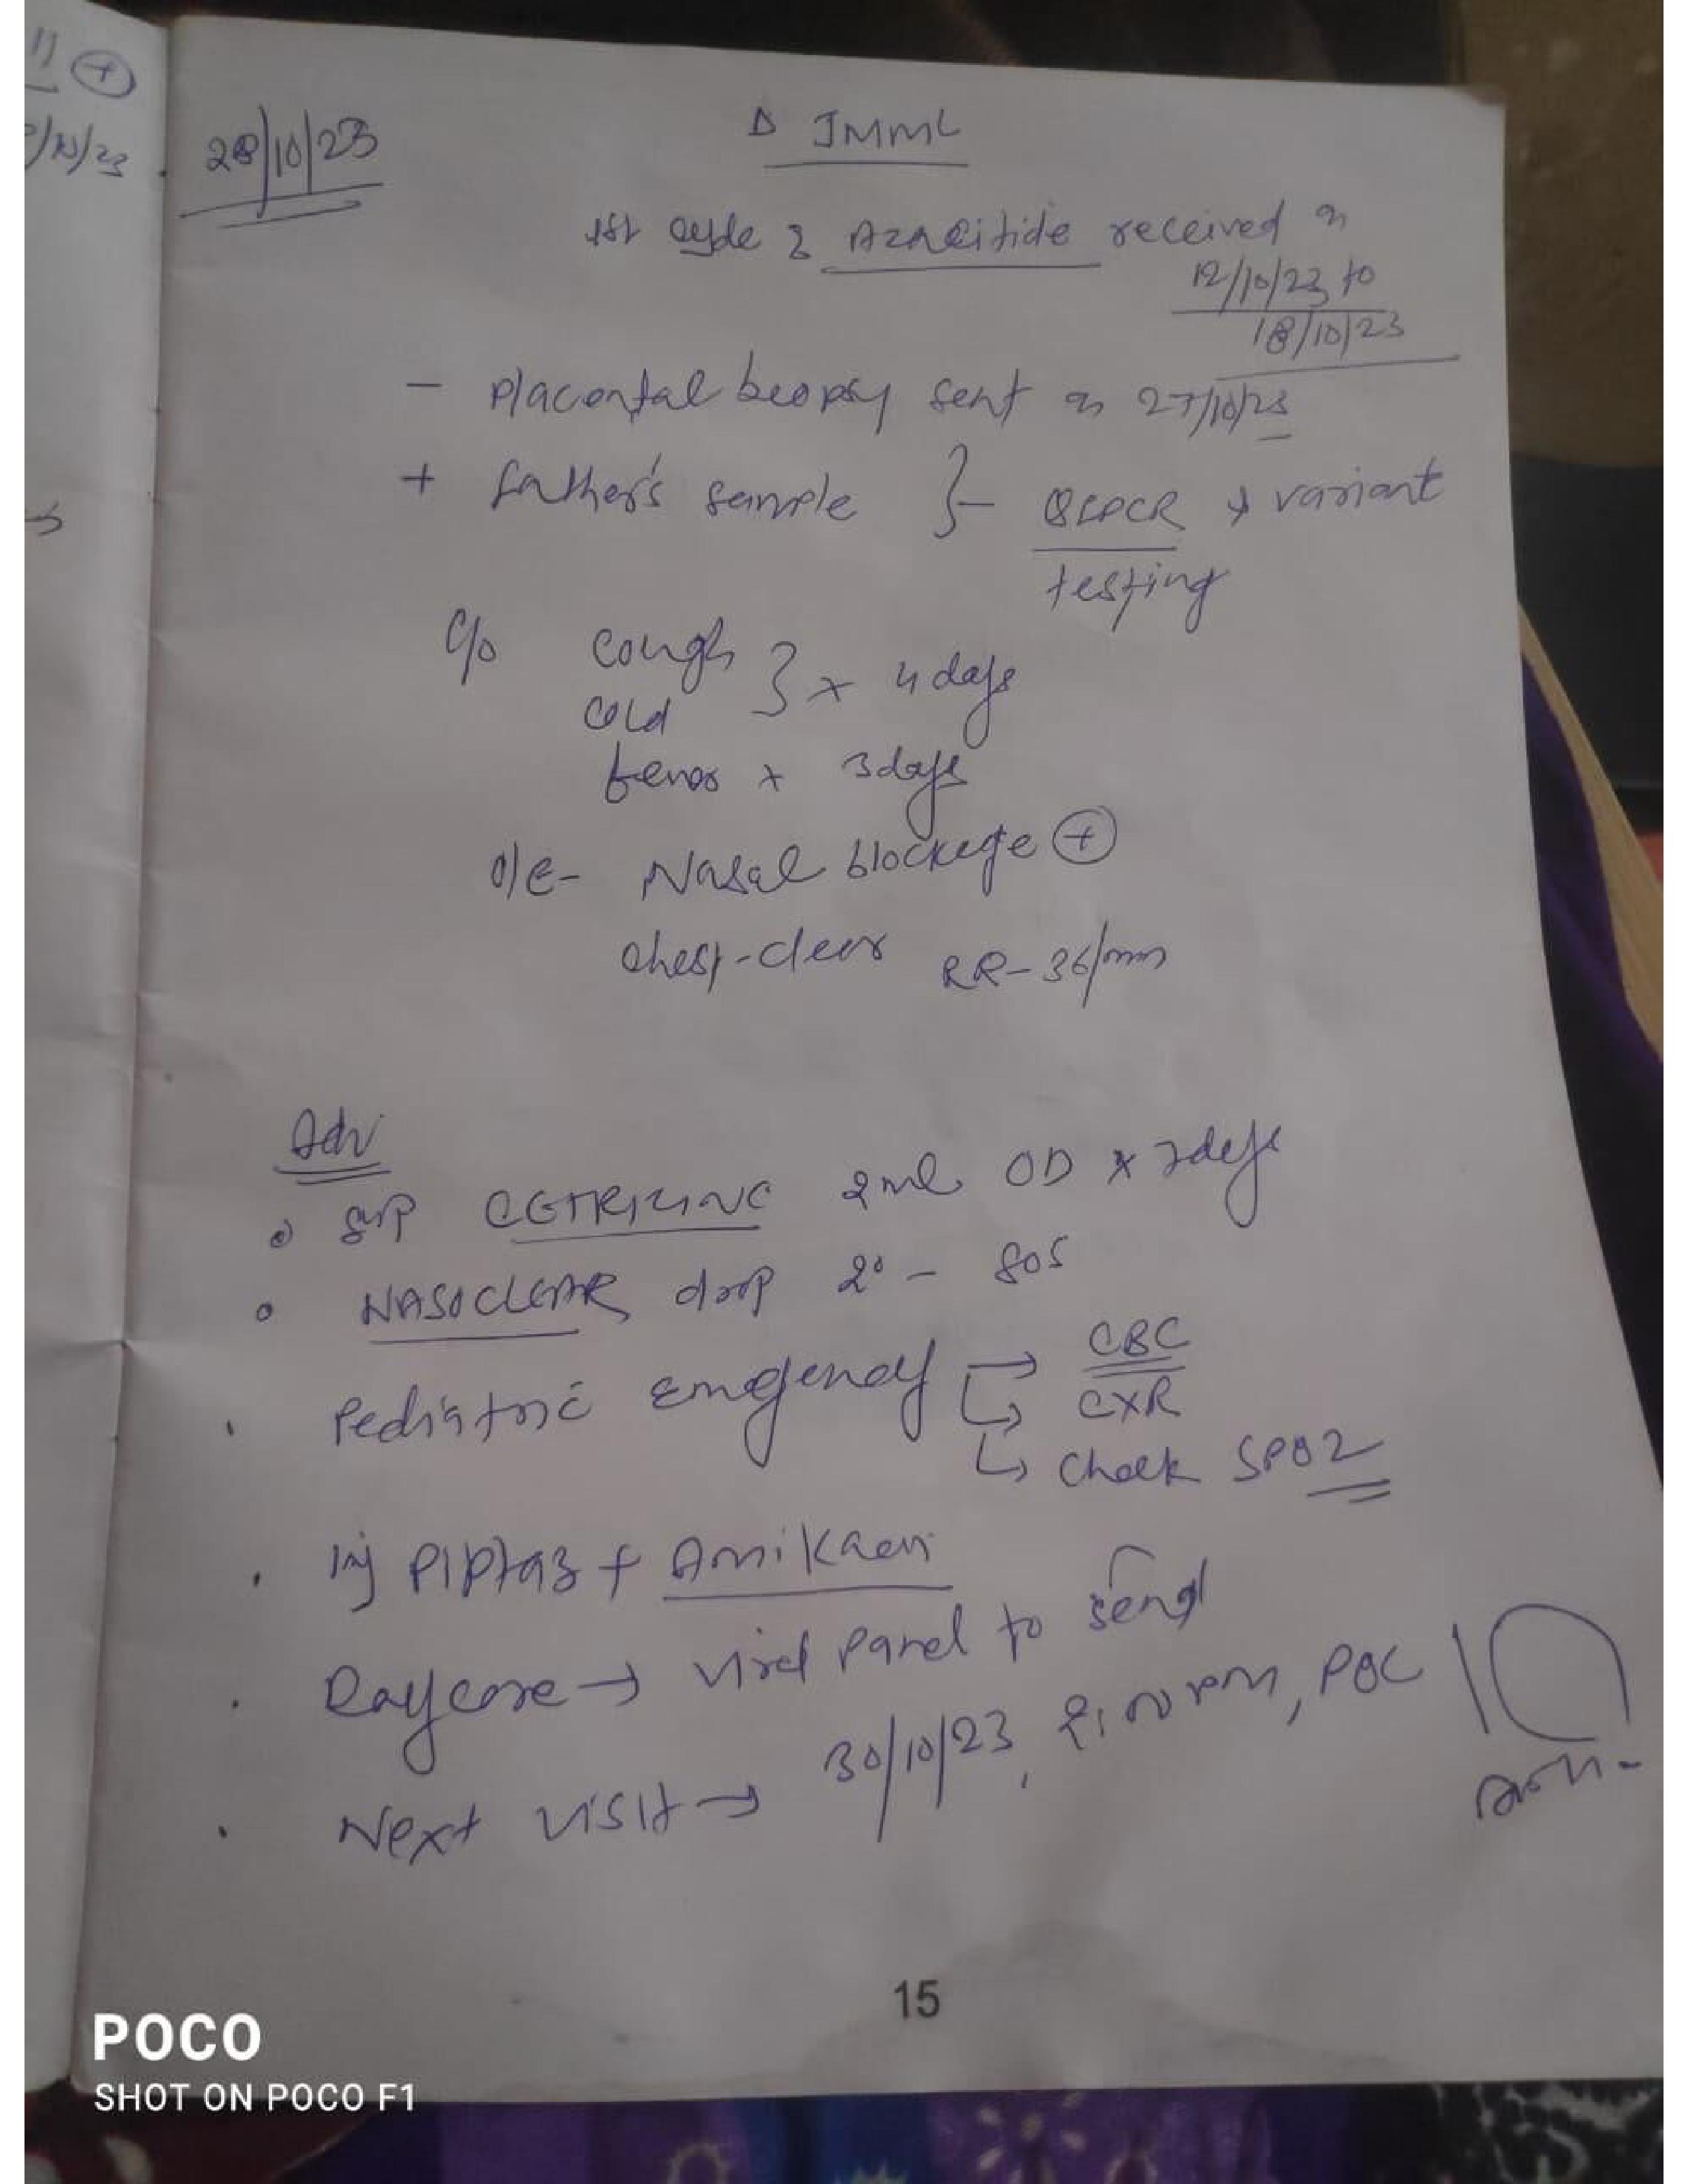 11 +
/10/23
28/10/23
Δ JMML
1st cycle of Azacitidie received on
12/10/23 to
18/10/23
- placental biopsy sent on 27/10/23
+ father's sample }- QFPCR & variant
testing
c/o cough
cold } x 4 days
fever x 3 days
o/e- Nasal blockage +
chest-clear RR-36/min
Adv
• syp CETRIZINE 2ml OD x 7 days
• NASOCLEAR drop 2° - SOS
• Pediatric emergency → CBC
↳ CXR
↳ Check SPO2
• inj Piptaz + Amikacin
• Daycare → viral panel to send
• Next visit → 30/10/23, 2:00 pm, POC
15
POCO
SHOT ON POCO F1